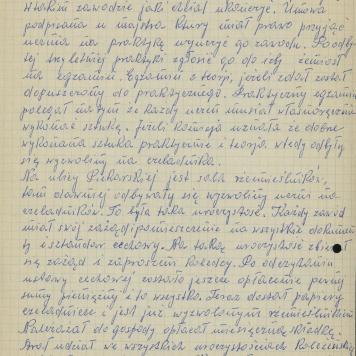 w takim zawodzie jaki działał ukończyć. Umowa
podpisana u majstra który miał prawo przyjąć
ucznia na praktykę wyuczyć go zawodu. Po odby-
tej trzyletniej praktyki zgłosić go do izby rzemiosł
na egzamin. Egzamin z teorji, jeżeli zdał został
dopuszczony do praktycznego. Praktyczny egzamin
polegał na tym że każdy uczeń musiał własnoręcznie
wykonać sztukę. Jeżeli komisja uznała że dobrze
wykonana sztuka praktycznie i teoria, wtedy odbyły
się wyzwoliny na czeladnika.
Na ulicy Piekarskiej jest sala rzemieślników,
tam dawniej odbywały się wyzwoliny uczni na
czeladników. To była taka uroczystość. Każdy zawód
miał swój zarząd i pomieszczenie na wszystkie dokumen
ty i sztandar cechowy. Na taką uroczystość zbierał
się zarząd i zaproszeni koledzy. Po odczytaniu
ustawy cechowej zostało jeszcze opłacenie pewnej
sumy pieniężnej i to wszystko. Teraz dostał papiery
czeladnicze i jest już wyzwolonym rzemieślnikiem
Należał do gospody opłacał miesięczną składkę.
Brał udział we wszystkich uroczystościach